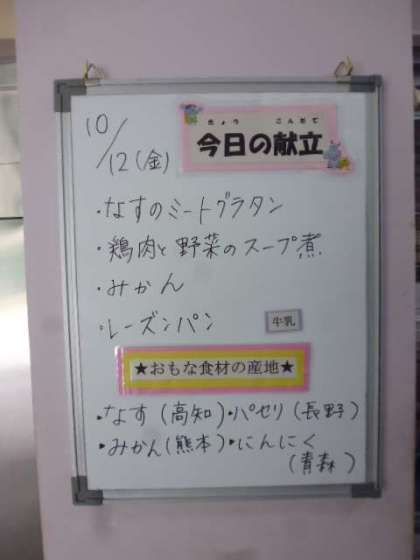 10/12(金)
きょう こんだて
今日の献立
・なすのミートグラタン
・鶏肉と野菜のスープ煮
・みかん
・レーズンパン 牛乳
★おもな食材の産地★
・なす(高知)・パセリ(長野)
・みかん(熊本)・にんにく
(青森)